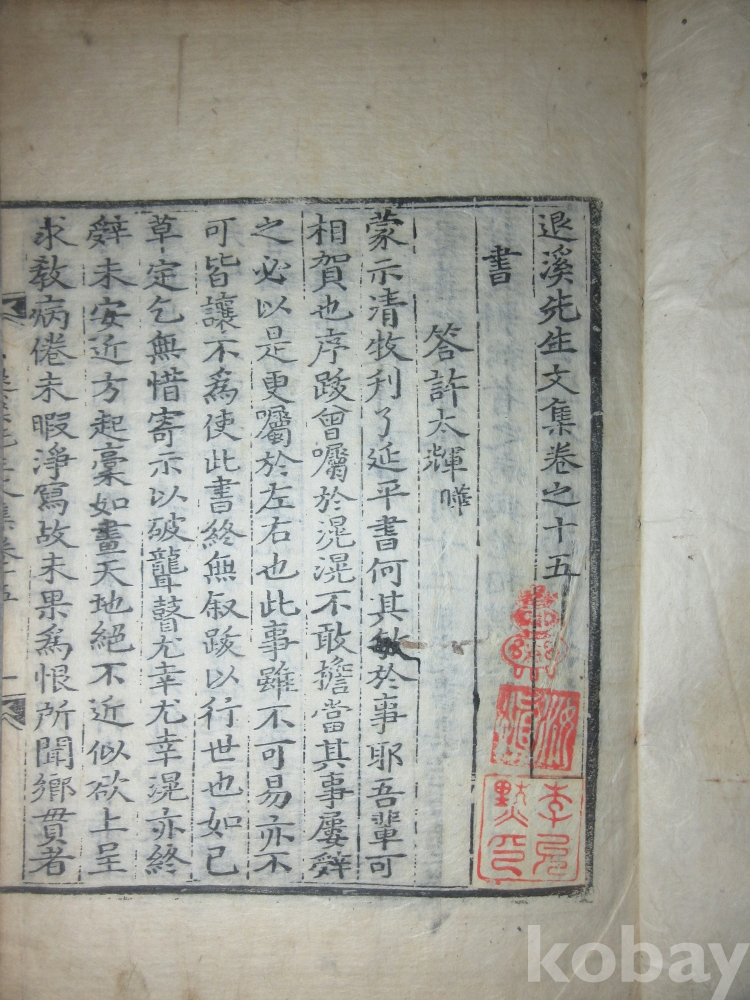 退溪先生文集卷之十五
書
答許太輝曄
蒙示清牧利了延平書何其敏於事耶吾輩可
相賀也序跋曾囑於滉滉不敢擔當其事屢辭
之必以是更囑於左右也此事雖不可易亦不
可皆讓不爲使此書終無叙跋以行世也如已
草定乞無惜寄示以破聾瞽尤幸尤幸滉亦終
辭未安近方起藁如畫天地絕不近似欲上呈
求敎病倦未暇淨寫故未果爲恨所聞鄕貫者
kobay